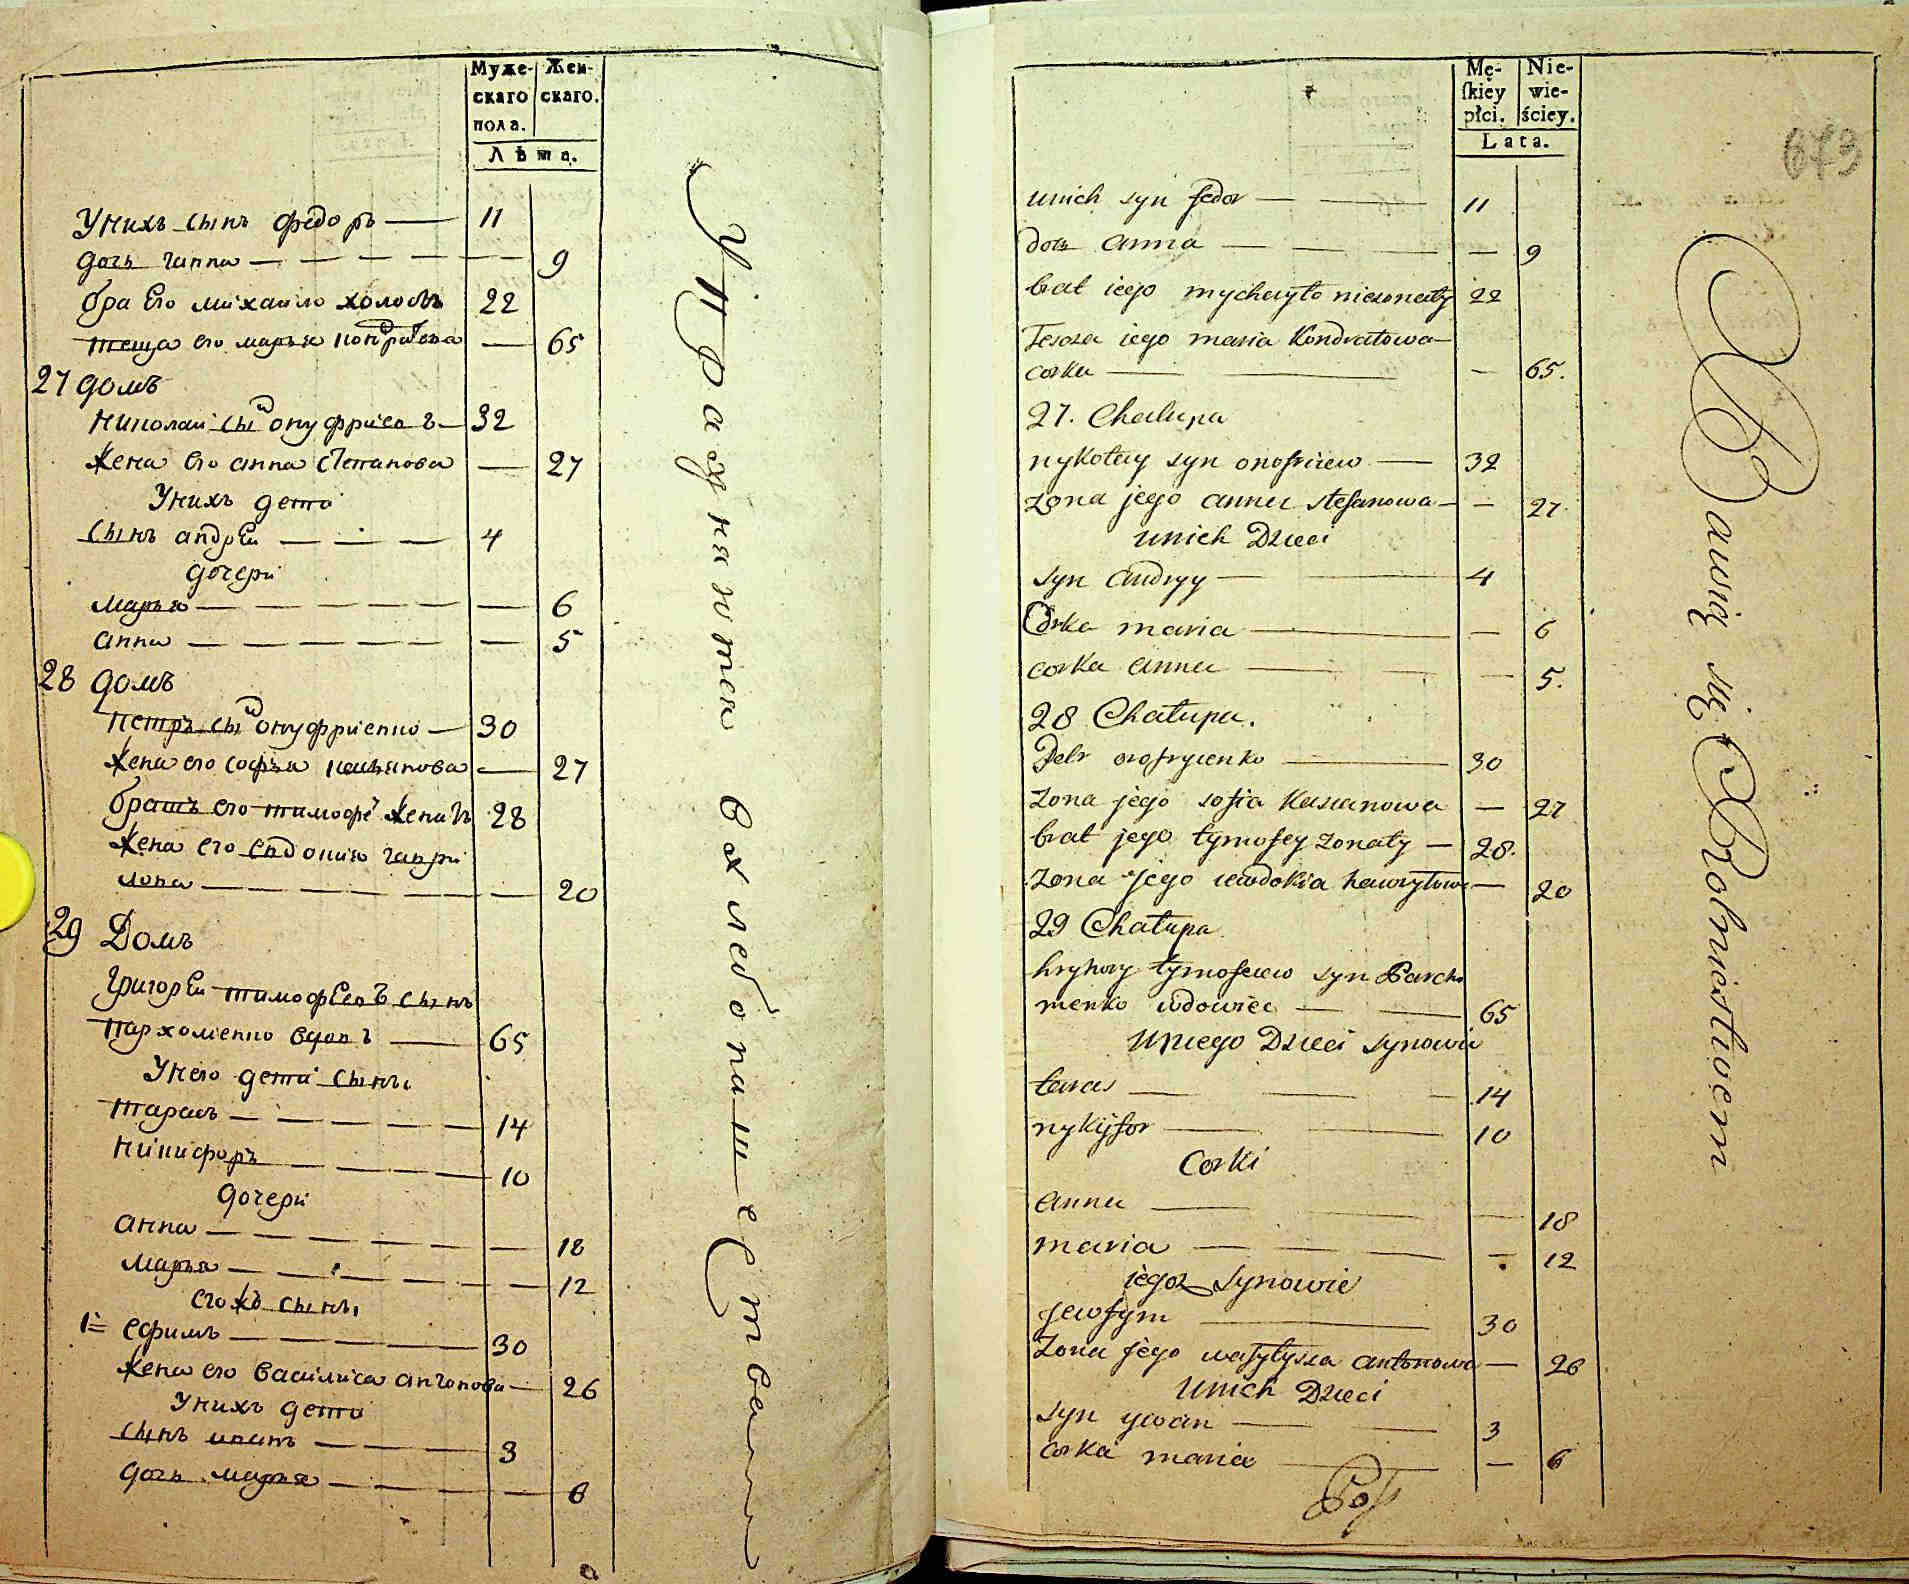 Муже-
скаго
пола.
Жен-
скаго.
Лѣта.
Унихъ сынъ федоръ — 11
дочь ганна — 9
бра Его михаило холостъ 22
теща его марья кондратева — 65
27 домъ
николаи сынъ онуфриевъ — 32
жена его анна степанова — 27
Унихъ дети
сынъ андрЕи — 4
дочери
марья — 6
анна — 5
28 домъ
петръ сынъ онуфриенко — 30
жена его софья касьянова — 27
братъ его тимофе женатъ 28
жена его евдокия гаври
лова — 20
29 Домъ
григорЕи тимофЕевъ сынъ
пархоменко вдовъ — 65
Унего дети сыны
тарасъ — 14
никифоръ — 10
дочери
анна — 18
марья — 12
егожъ сыны
1= ефимъ — 30
жена его василиса антонова — 26
Унихъ дети
сынъ иванъ — 3
дочь марья — 6
Упражняются вхлебопашествами
Mę-
ſkiey
płci.
Nie-
wie-
ściey.
Lata.
673
unich syn fedor — 11
docz anna — 9
brat iego mychayło niezonaty 22
Tescza iego maria Kondratowa
corka — 65.
27. Chalupa
nykołay syn onofriew — 32
zona jego anna stefanowa — 27
unich Dzieci
syn andryy — 4
Corka maria — 6
corka anna — 5.
28 Chałupa.
Petr onofryienko — 30
zona jego sofia Kasianowa — 27
brat jego tymofey zonaty — 28.
zona jego iewdokia hawryłowa — 20
29 Chałupa
hryhory tymofeiew syn Parcho
menko wdowiec — 65
Uniego Dzieci synowie
taras — 14
nykiyfor — 10
Corki
anna — 18
maria — 12
iegoz synowie
jewfym — 30
zona jego wasyłysza antonowa — 26
Unich Dzieci
syn ywan — 3
corka maria — 6
Bawią się Rolnictwem